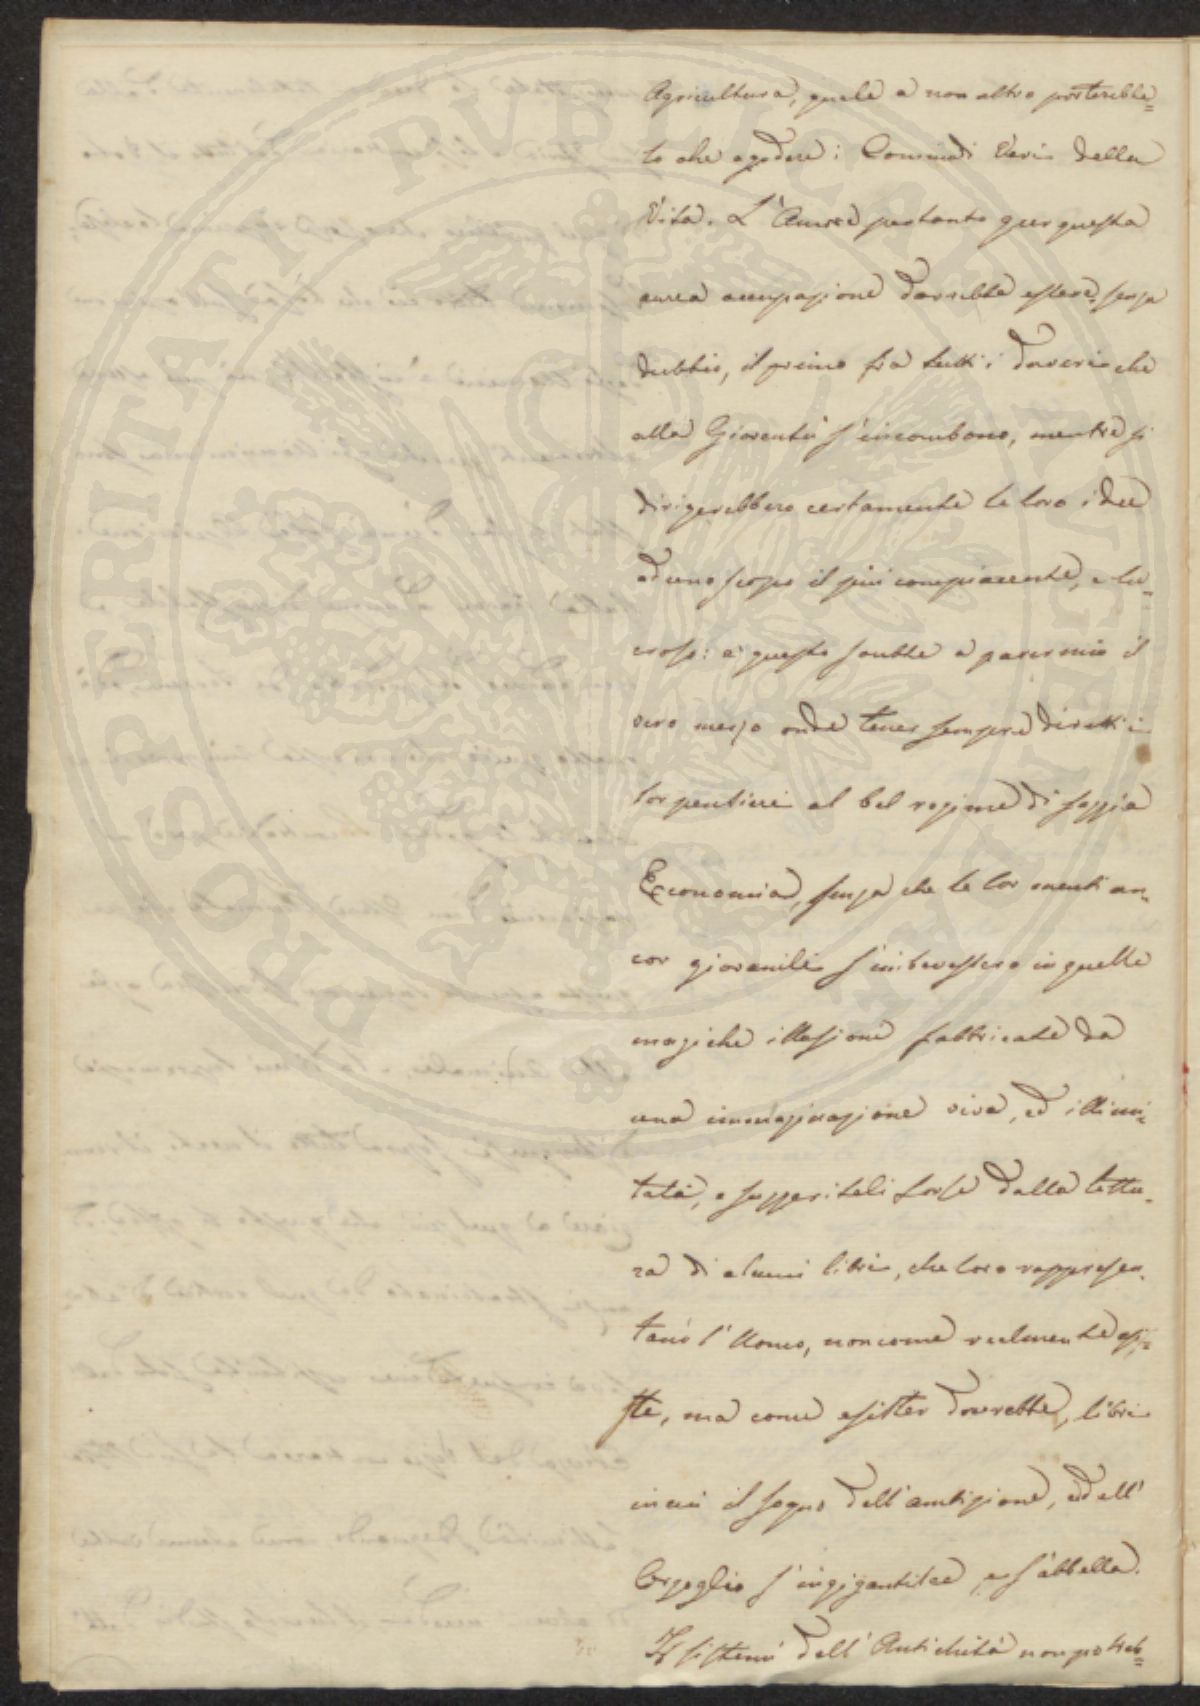 Agricultura, quale a non altro porterebbe=
lo che a godere i Comodi Veri della
Vita. L'Amore pertanto per questa
aurea occupazione dovrebbe essere, senza
dubbio, il primo fra tutti i doveri che
alla Gioventù s'incombono, mentre si
dirigerebbero certamente le loro idee
ad uno scopo il più compiacente, e lu=
croso: e questo sarebbe a parer mio il
vero mezzo onde tener sempre diretti i
lor pensieri al bel regime di saggia
Economia, senza che le lor menti an=
cor giovanili s'imbevessero in quelle
magiche illusioni fabbricate da
una immaginazione viva, ed illimi=
tata, e suggeriteli forse dalla lettu=
ra di alcuni libri, che loro rappresen=
tano l'Uomo, non come realmente esi=
ste, ma come esister dovrebbe, libri
in cui il sogno dell'ambizione, e dell'
Orgoglio s'ingigantisce, e s'abbella.
I sistemi dell'Antichità non potreb=
PROSPERITATI PVBLICAE AVGENDAE